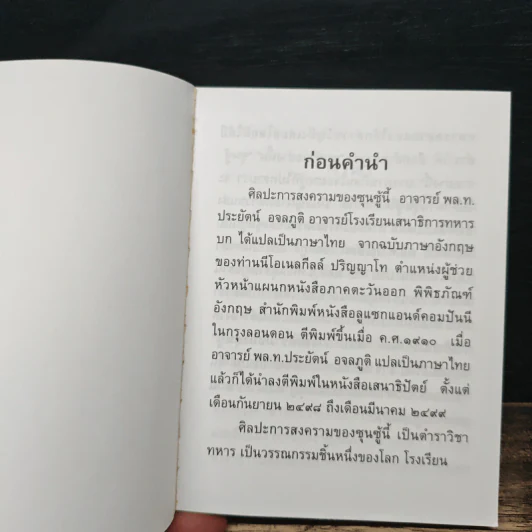 ก่อนคำนำ
ศิลปะการสงครามของซุนซู้นี้ อาจารย์ พล.ท.
ประยัตน์ อจลภูติ อาจารย์โรงเรียนเสนาธิการทหาร
บก ได้แปลเป็นภาษาไทย จากฉบับภาษาอังกฤษ
ของท่านนีโอเนลกีลส์ ปริญญาโท ตำแหน่งผู้ช่วย
หัวหน้าแผนกหนังสือภาคตะวันออก พิพิธภัณฑ์
อังกฤษ สำนักพิมพ์หนังสือลูแซกแอนด์คอมปันนี
ในกรุงลอนดอน ตีพิมพ์ขึ้นเมื่อ ค.ศ.๑๙๑๐ เมื่อ
อาจารย์ พล.ท.ประยัตน์ อจลภูติ แปลเป็นภาษาไทย
แล้วก็ได้นำลงตีพิมพ์ในหนังสือเสนาธิปัตย์ ตั้งแต่
เดือนกันยายน ๒๔๙๘ ถึงเดือนมีนาคม ๒๔๙๙
ศิลปะการสงครามของซุนซู้นี้ เป็นตำราวิชา
ทหาร เป็นวรรณกรรมชิ้นหนึ่งของโลก โรงเรียน